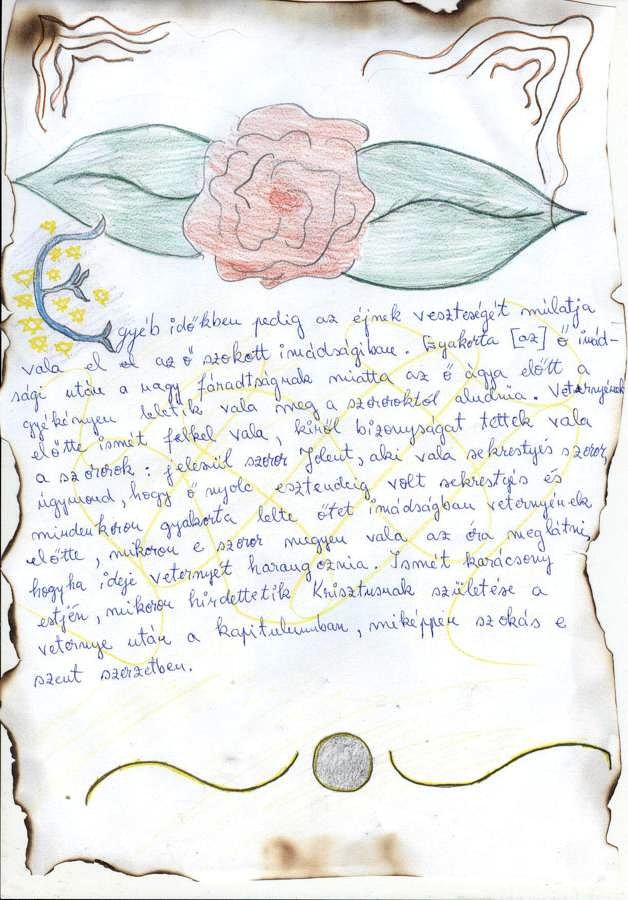 Egyéb időkben pedig az éjnek veszteségét múlatja
vala el az ő szokott imádságiban. Gyakorta [az] ő imád-
sági után a nagy fáradtságnak miatta az ő ágya előtt a
gyékényen leletik vala meg a szoroktól aludnia. Veternyének
előtte ismét felkel vala, kiről bizonyságat töttek vala
a szororok: jelesül szoror Jolent, aki vala sekrestyés szoror,
úgymond, hogy ő nyolc esztendeig volt sekrestyés és
mindenkoron gyakorta lelte őtet imádságban veternyének
előtte, mikoron e szoror megyen vala az óra meglátni,
hogyha ideje veternyét harangoznia. Ismét karácsony
estjén, mikoron hirdettetik Krisztusnak születése a
veternye után a kapitulumban, miképpen szokás e
szent szerzetben.